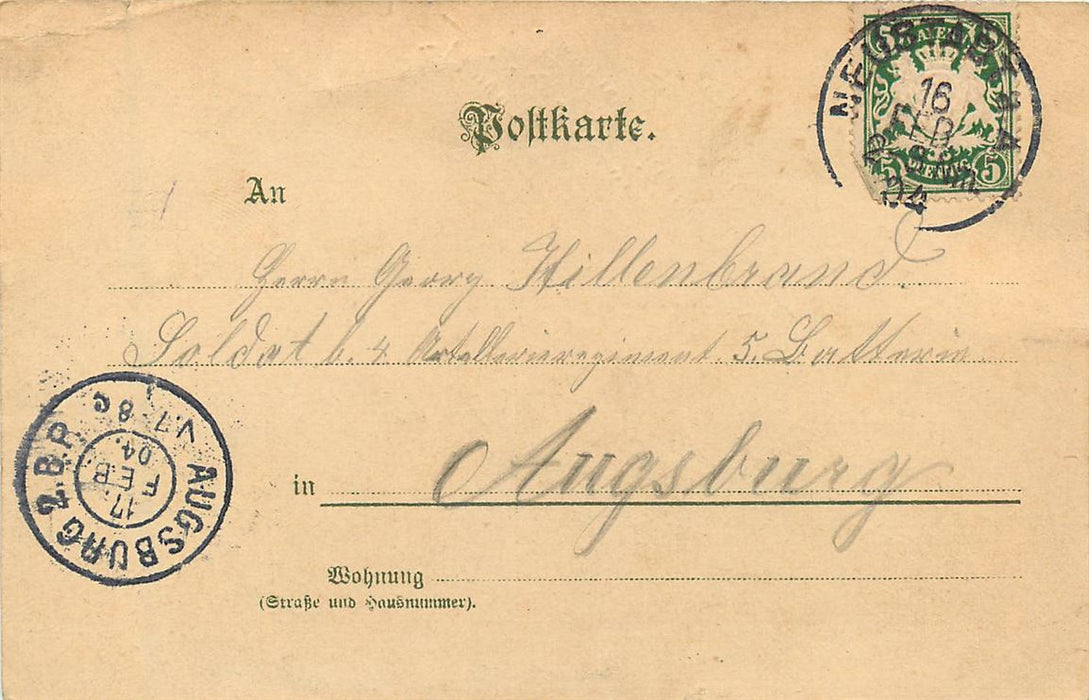 Postkarte.
NEUSTADT
16
FEB
04
BAYERN
5 5
PFENNIG
An
Herrn Georg Hillenbrand.
Soldat b. 4 Artillerieregiment 5. Batterie
in Augsburg
AUGSBURG 2. B.P.
V.7-8
17.
FEB
04.
Wohnung
(Straße und Hausnummer).